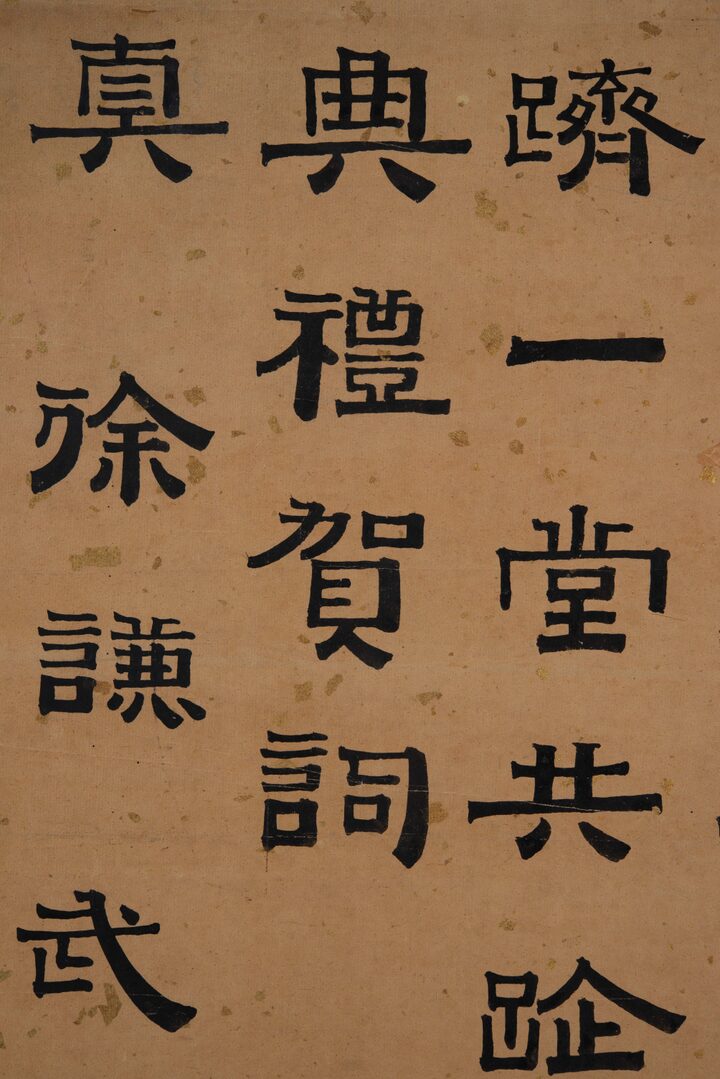 躋一堂共
典禮賀詞
真徐謙武